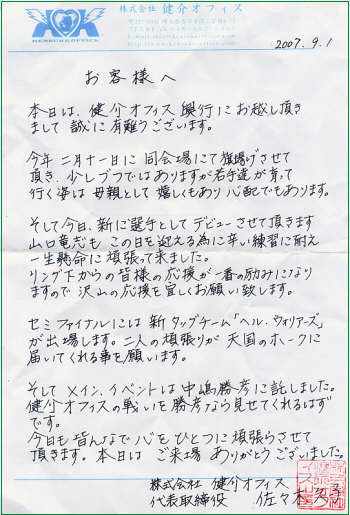 株式会社 健介オフィス
KENSUKE OFFICE
2007.9.1
お客様へ
本日は、健介オフィス興行にお越し頂き
まして誠に有難うございます。
今年二月十一日に同会場にて旗揚げさせて
頂き、少しづつではありますが若手達が育って
行く姿は母親として嬉しくもあり心配でもあります。
そして今日、新に選手としてデビューさせて頂きます
山口竜志も この日を迎える為に辛い練習に耐え
一生懸命に頑張って来ました。
リング下からの皆様の応援が一番の励みになり
ますので沢山の応援を宜しくお願い致します。
セミファイナルには新タッグチーム「ヘル・ウォリアーズ」
が出場します。二人の頑張りが天国のホークに
届いてくれる事を願います。
そしてメイン、イベントは中嶋勝彦に託しました。
健介オフィスの戦いを勝彦なら見せてくれるはず
です。
今日も皆んなで心をひとつに頑張らさせて
頂きます。本日は ご来場 ありがとうございました。
株式会社 健介オフィス
代表取締役 佐々木久子